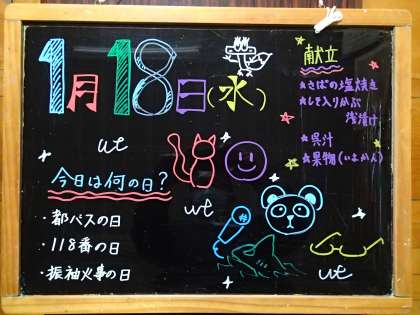 1月18日(水)
献立
★さばの塩焼き
★しそ入りかぶ
浅漬け
★呉汁
★果物(いよかん)
ut
今日は何の日?
ut
・都バスの日
・118番の日
・振袖火事の日
ut